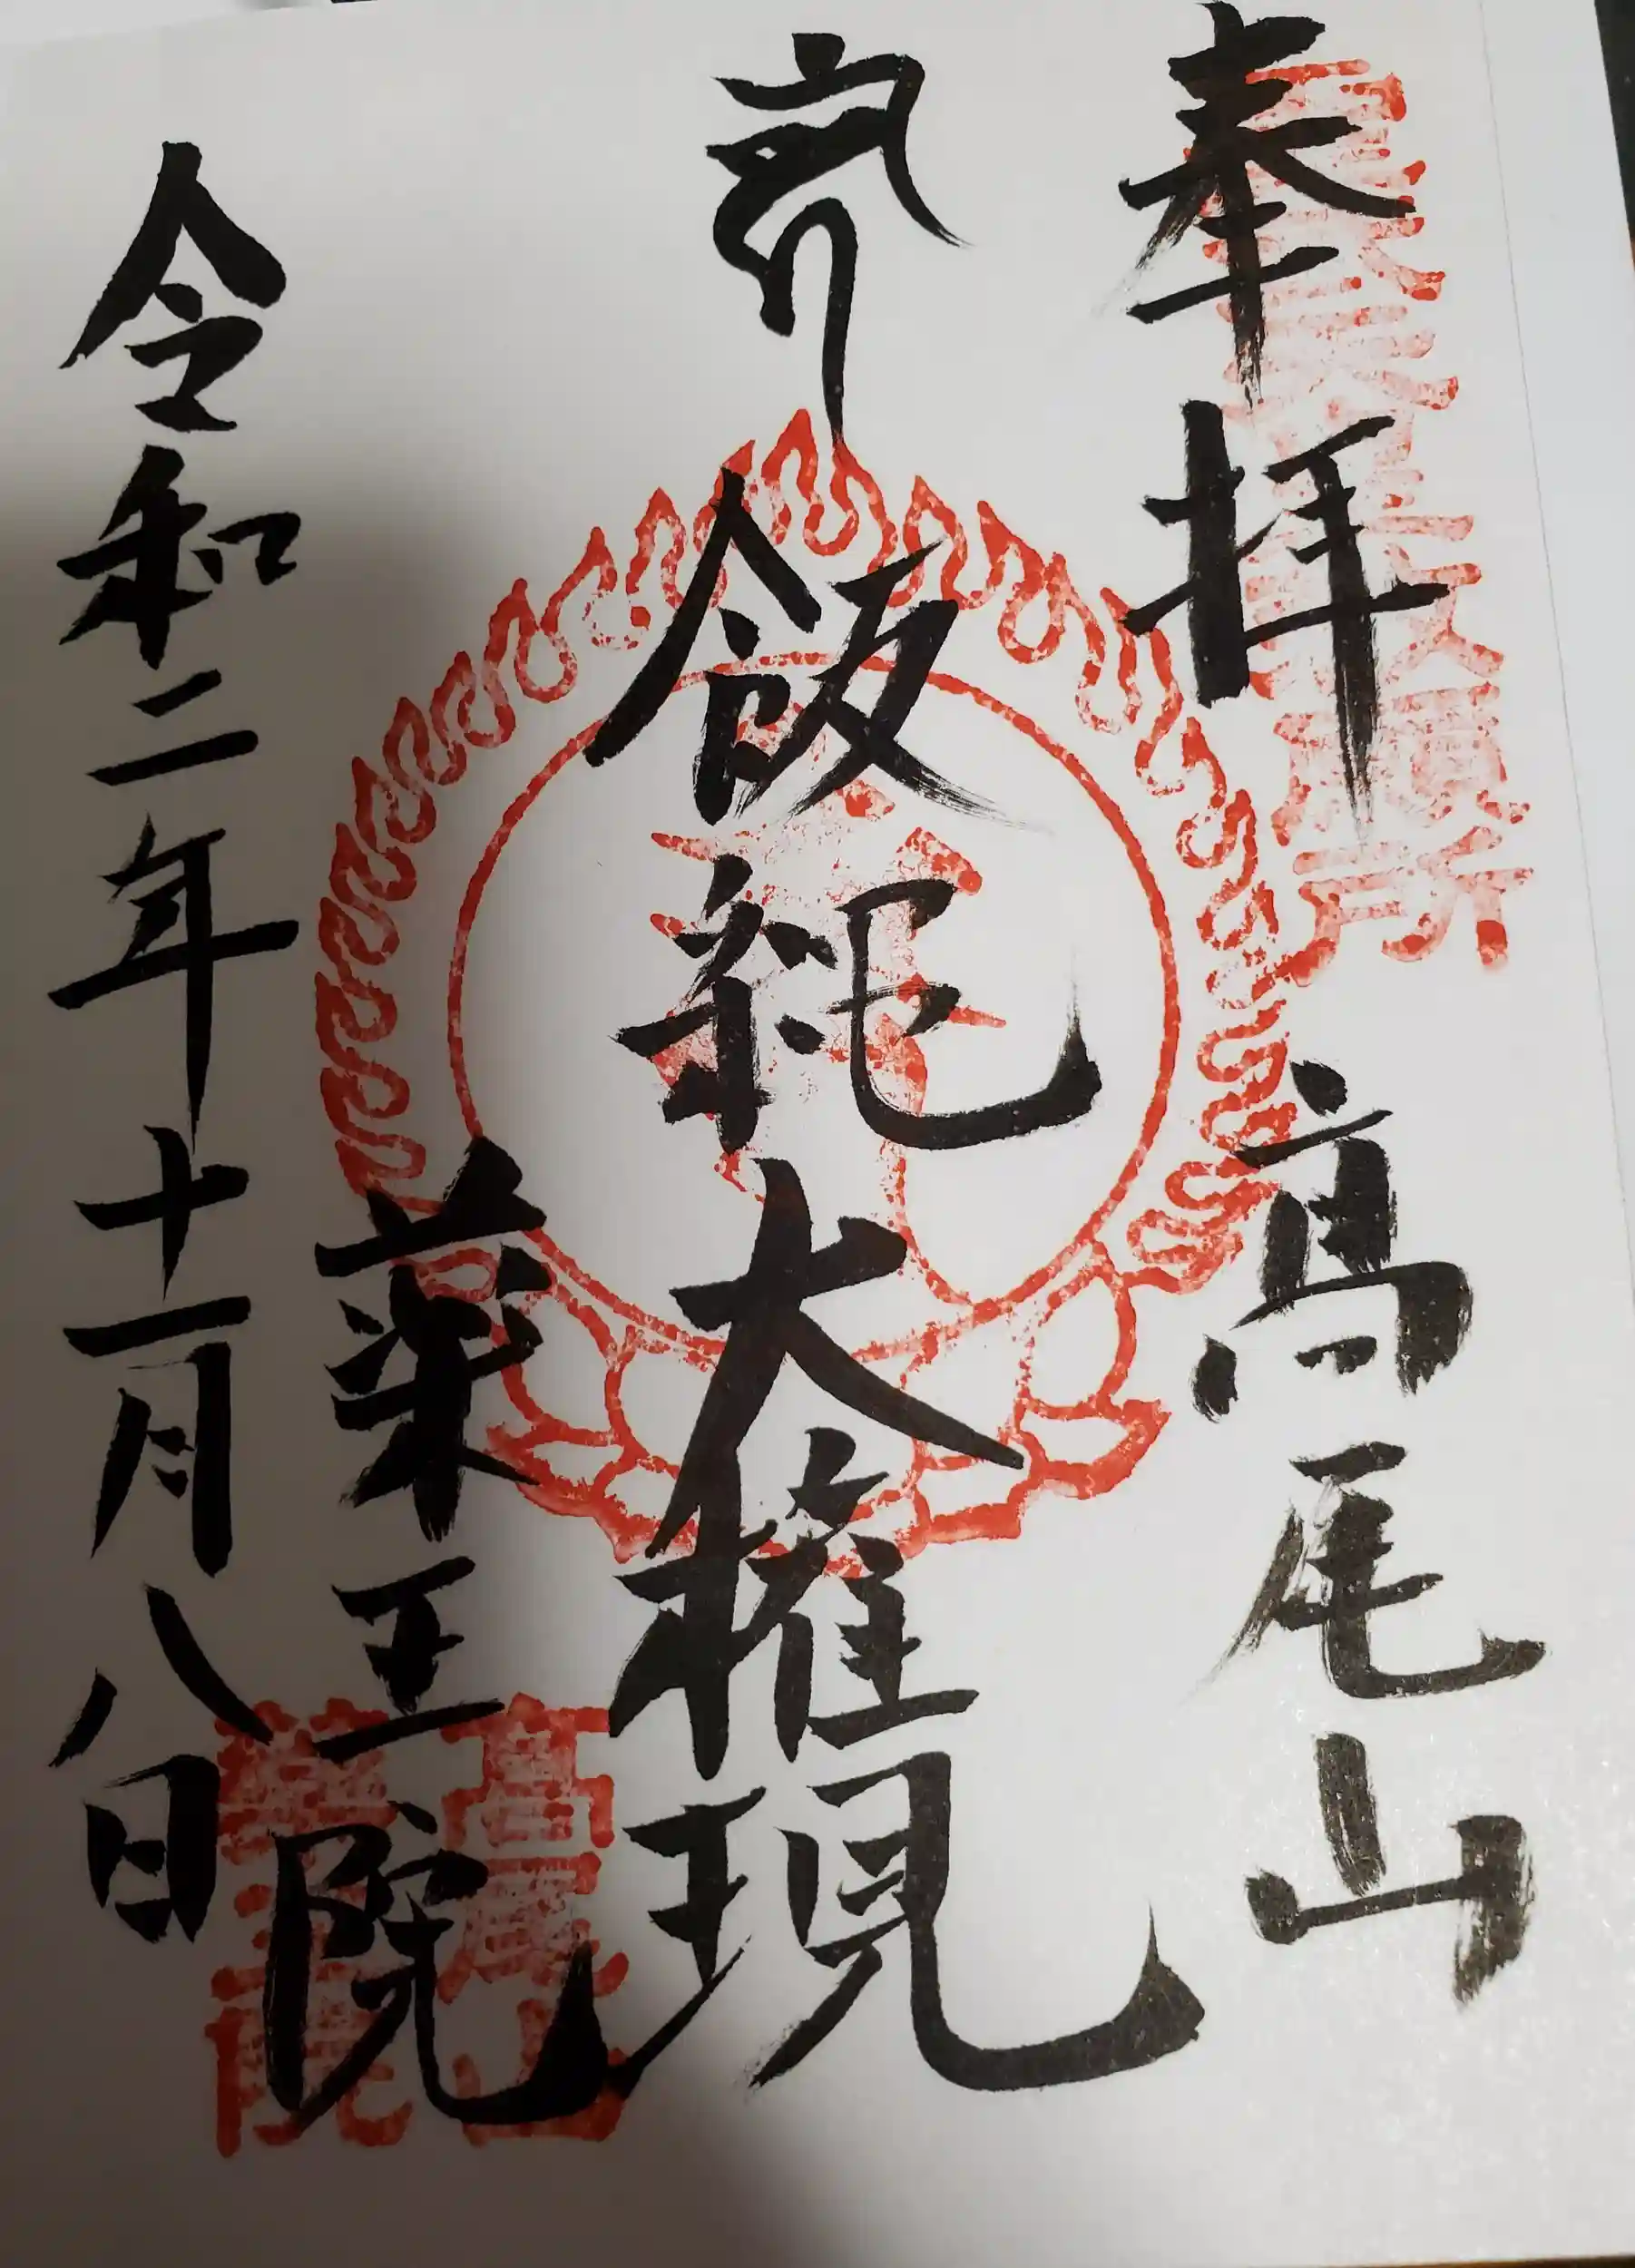 奉拝
高尾山
飯縄大権現
薬王院
令和二年十一月八日